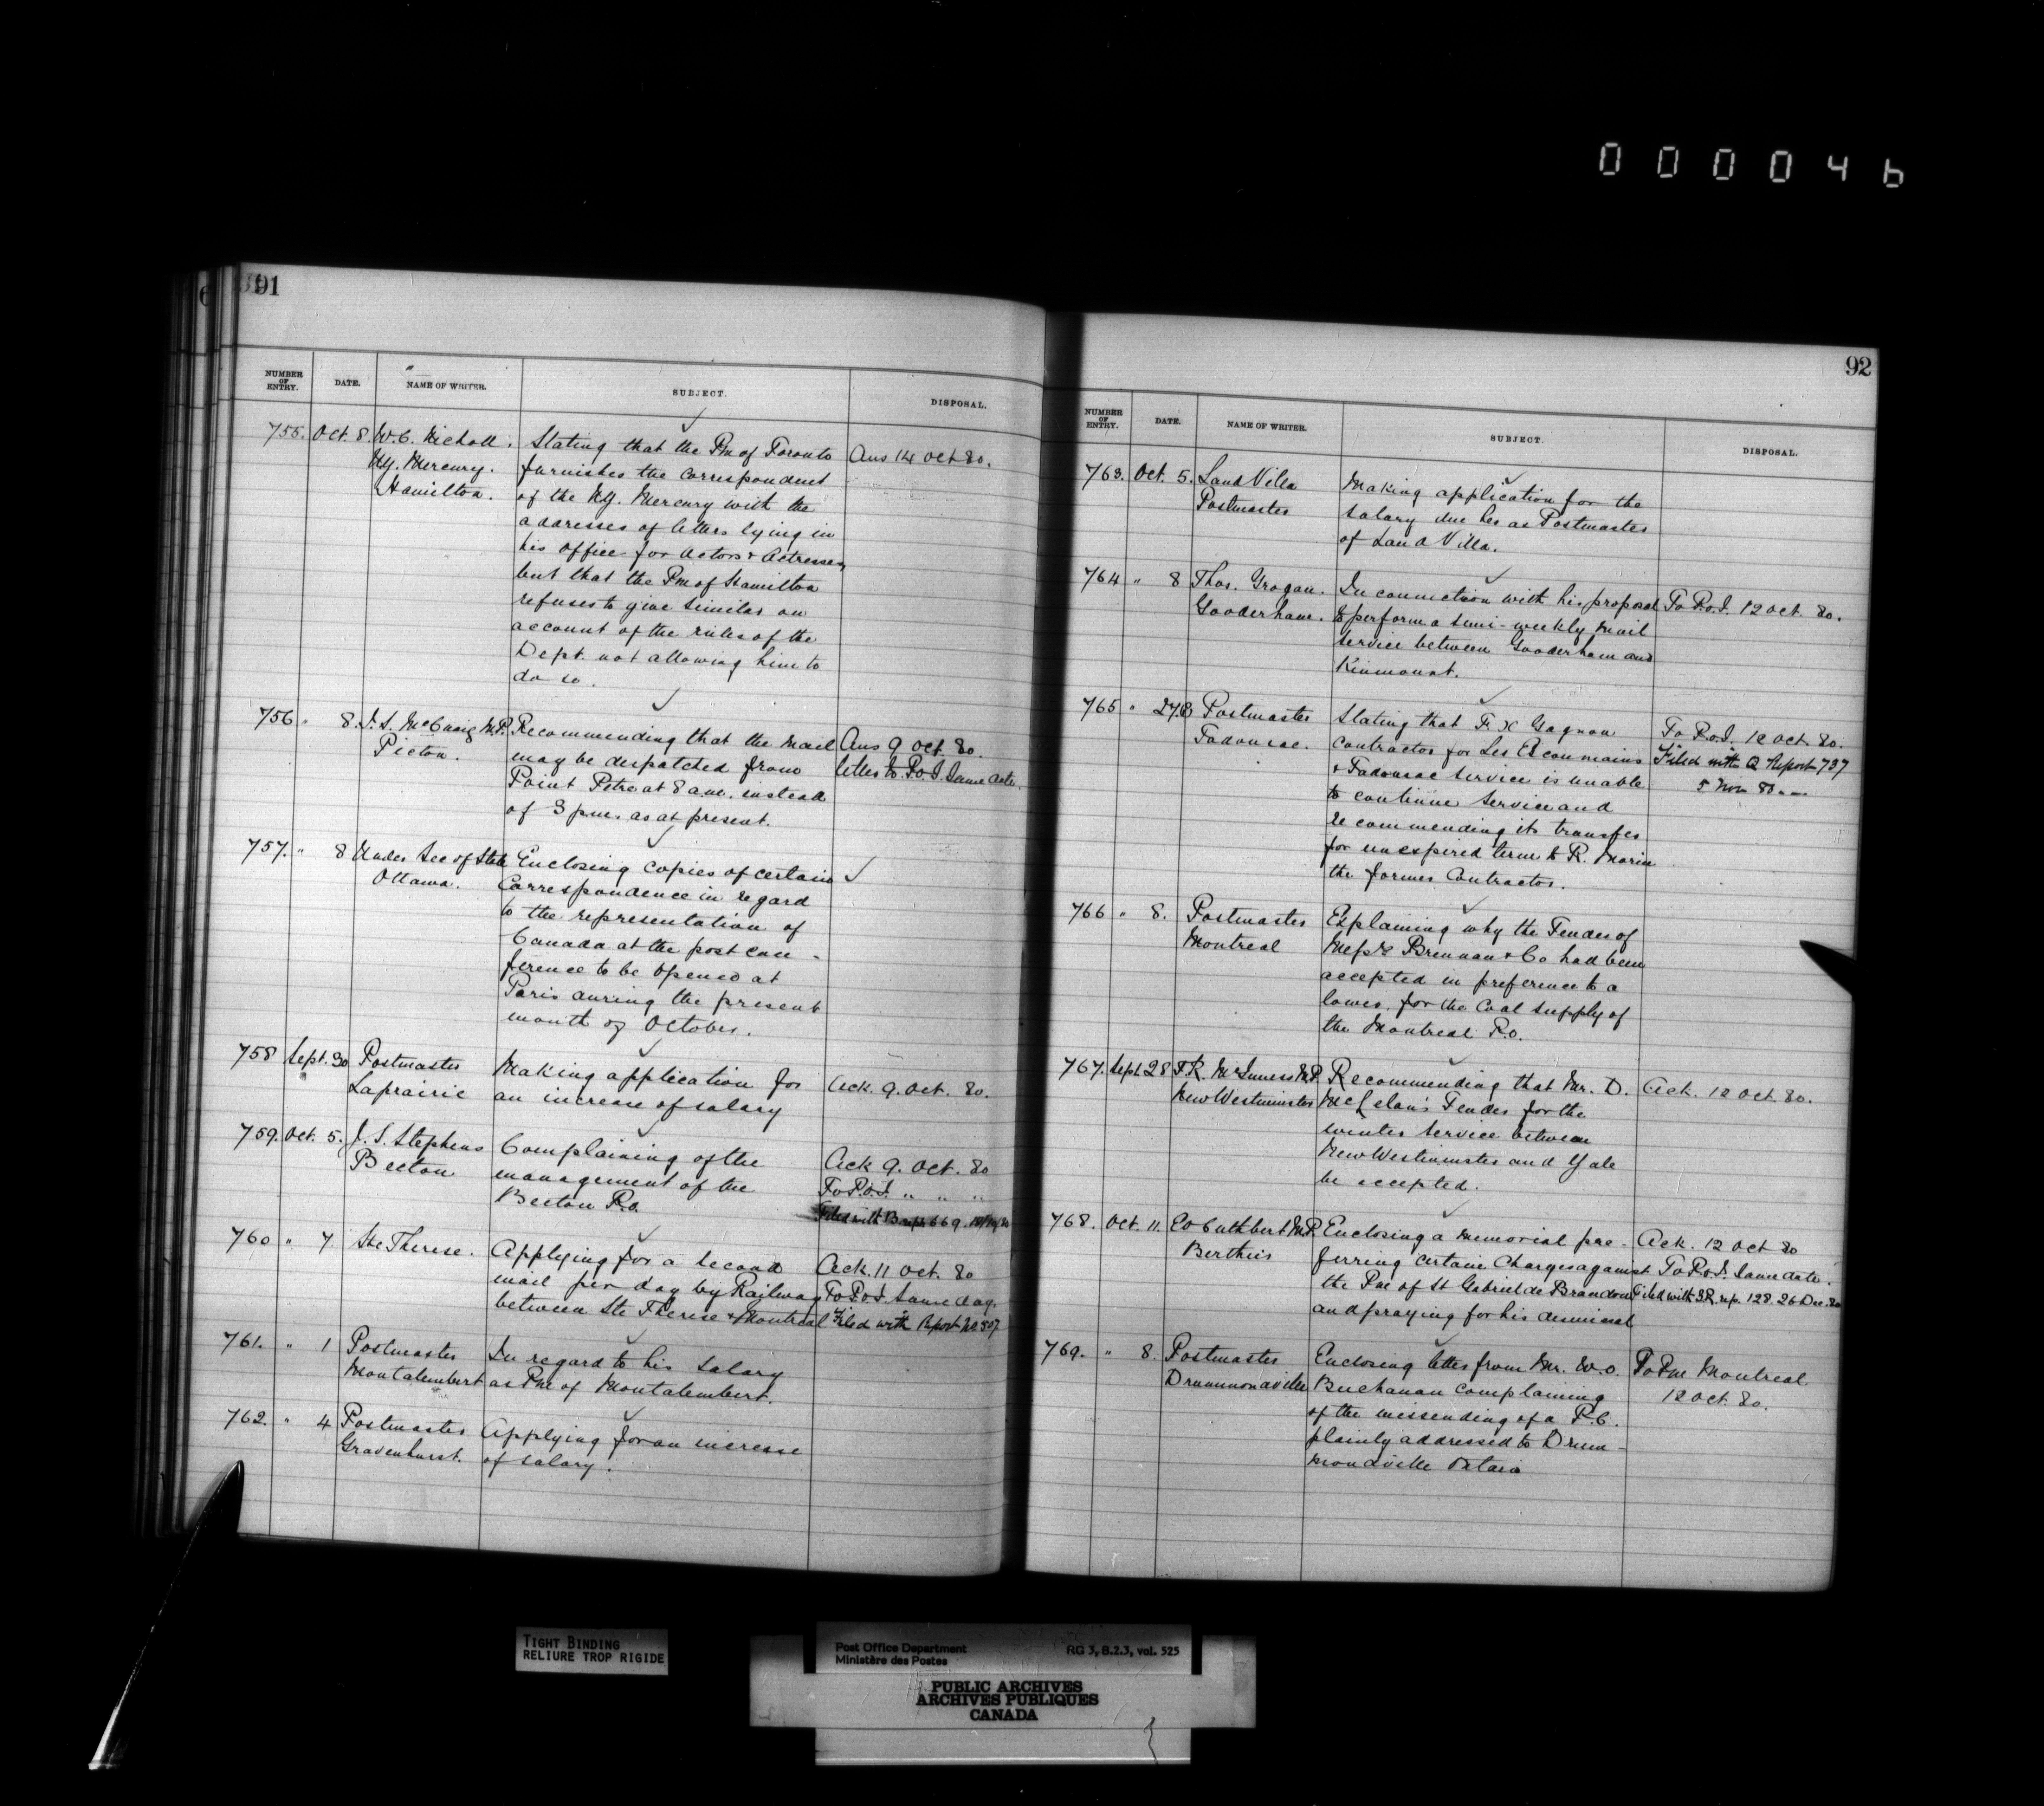 000046
91
NUMBER OF ENTRY. DATE. NAME OF WRITER. SUBJECT. DISPOSAL.
755. Oct. 8. W. C. Nicholl. Stating that the Pm of Toronto Ans 14 Oct 80.
N.Y. Mercury. furnishes the correspondent
Hamilton. of the N.Y. Mercury with the
addresses of letters lying in
his office for actors & actresses,
but that the Pm of Hamilton
refuses to give similar on
account of the rules of the
Dept. not allowing him to
do so.
756 " 8. J. S. McCuaig M.P. Recommending that the mail Ans 9 Oct 80.
Picton. may be despatched from letter to P.O.I. same date.
Point Petre at 8 a.m. instead
of 3 p.m. as at present.
757. " 8 Under Sec of State Enclosing copies of certain
Ottawa. Correspondence in regard
to the representation of
Canada at the post con-
ference to be opened at
Paris during the present
month of October.
758 Sept. 30 Postmaster Making application for Ack. 9. Oct. 80.
Laprairie an increase of salary
759. Oct. 5. J. S. Stephens Complaining of the Ack 9. Oct. 80
Beeton management of the To P.O.I. " " "
Beeton P.O. Filed with B rept 669
760 " 7 Ste Therese. Applying for a second Ack. 11 Oct. 80
mail per day by Railway To P.O.I. same day.
between Ste Therese & Montreal Filed with Report No 507
761. " 1 Postmaster In regard to his salary
Montalembert as Pm of Montalembert.
762. " 4 Postmaster Applying for an increase
Gravenhurst. of salary.
92
NUMBER OF ENTRY. DATE. NAME OF WRITER. SUBJECT. DISPOSAL.
763. Oct. 5. Land Villa Making application for the
Postmaster salary due her as Postmaster
of Land Villa.
764 " 8 Thos. Grogan. In connection with his proposal To P.O.I. 12 Oct. 80.
Gooderham. to perform a semi-weekly mail
service between Gooderham and
Kinmount.
765 " Postmaster Stating that F. X Gagnon To P.O.I. 12 Oct. 80.
Tadousac. contractor for Les Escoumains Filed with Q Report 737
& Tadousac service is unable 5 Nov 80.
to continue service and
recommending its transfer
for unexpired term to R. Morin
the former Contractor.
766 " 8. Postmaster Explaining why the Tender of
Montreal Messrs Brennan & Co had been
accepted in preference to a
lower, for the Coal supply of
the Montreal P.O.
767. Sept 28 T.R. McInness M.P. Recommending that Mr. D. Ack. 12 Oct. 80.
New Westminster McLelan's Tender for the
winter service between
New Westminster and Yale
be accepted.
768. Oct. 11. Ed Cuthbert M.P. Enclosing a memorial pre- Ack. 12 Oct 80
Berthier ferring certain Charges against To P.O.I. same date.
the Pm of St Gabriel de Brandon Filed with Q.R. rep. 128. 26 Dec. 80
and praying for his dismissal
769. " 8. Postmaster Enclosing letter from Mr. W.O. To Pm Montreal
Drummondville Buchanan complaining 12 Oct. 80.
of the missending of a P.C.
plainly addressed to Drum-
mondville Ontario
TIGHT BINDING
RELIURE TROP RIGIDE
Post Office Department RG 3, B.2.3, vol. 525
Ministère des Postes
PUBLIC ARCHIVES
ARCHIVES PUBLIQUES
CANADA